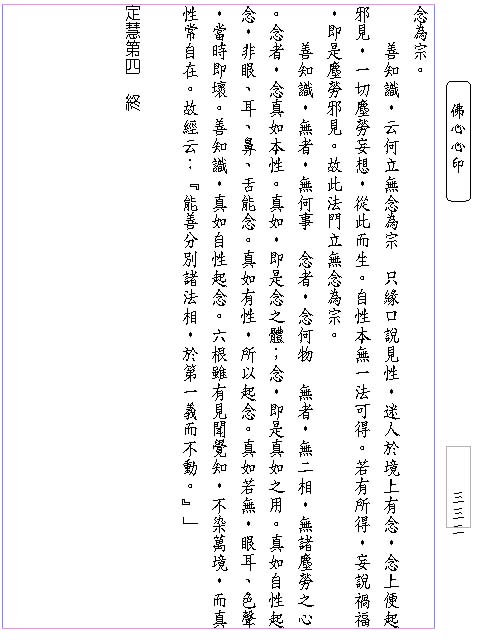 佛心心印
三三二
念為宗。
善知識，云何立無念為宗　只緣口說見性，迷人於境上有念，念上便起
邪見，一切塵勞妄想，從此而生。自性本無一法可得。若有所得，妄說禍福
，即是塵勞邪見。故此法門立無念為宗。
善知識，無者，無何事　念者，念何物　無者，無二相，無諸塵勞之心
。念者，念真如本性。真如，即是念之體；念，即是真如之用。真如自性起
念，非眼、耳、鼻、舌能念。真如有性，所以起念。真如若無，眼耳、色聲
，當時即壞。善知識，真如自性起念。六根雖有見聞覺知，不染萬境，而真
性常自在。故經云：『能善分別諸法相，於第一義而不動。』」
定慧第四　終